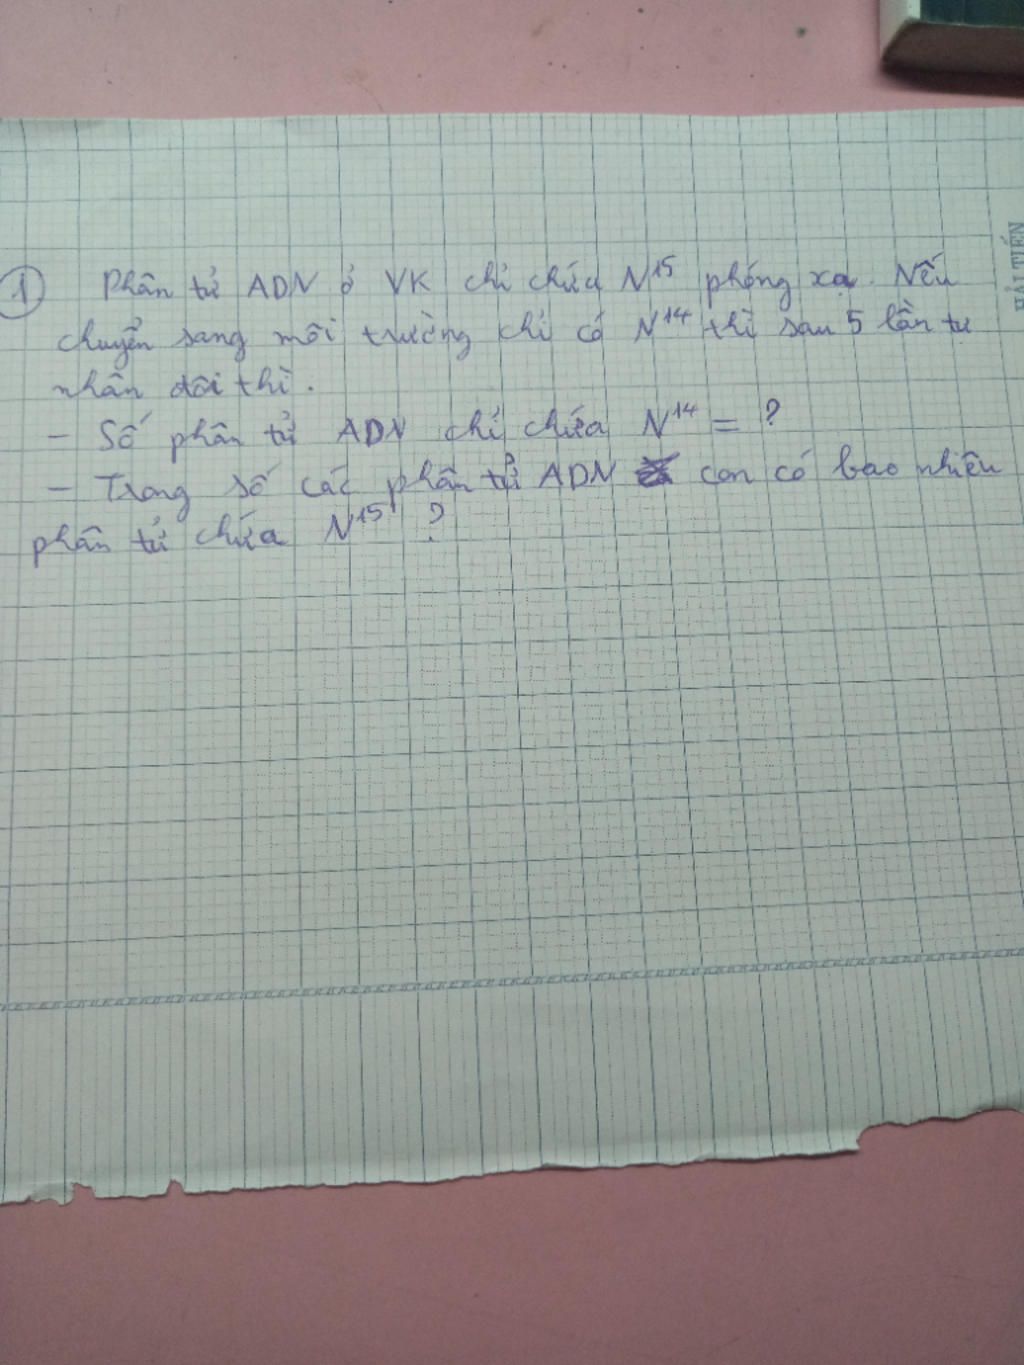 HẢI TIẾN
① Phân tử ADN ở VK chỉ chứa N¹⁵ phóng xạ. Nếu
chuyển sang môi trường chỉ có N¹⁴ thì sau 5 lần tư
nhân đôi thì.
- Số phân tử ADN chỉ chứa N¹⁴ = ?
- Trong số các phân tử ADN con có bao nhiêu
phân tử chứa N¹⁵ ?